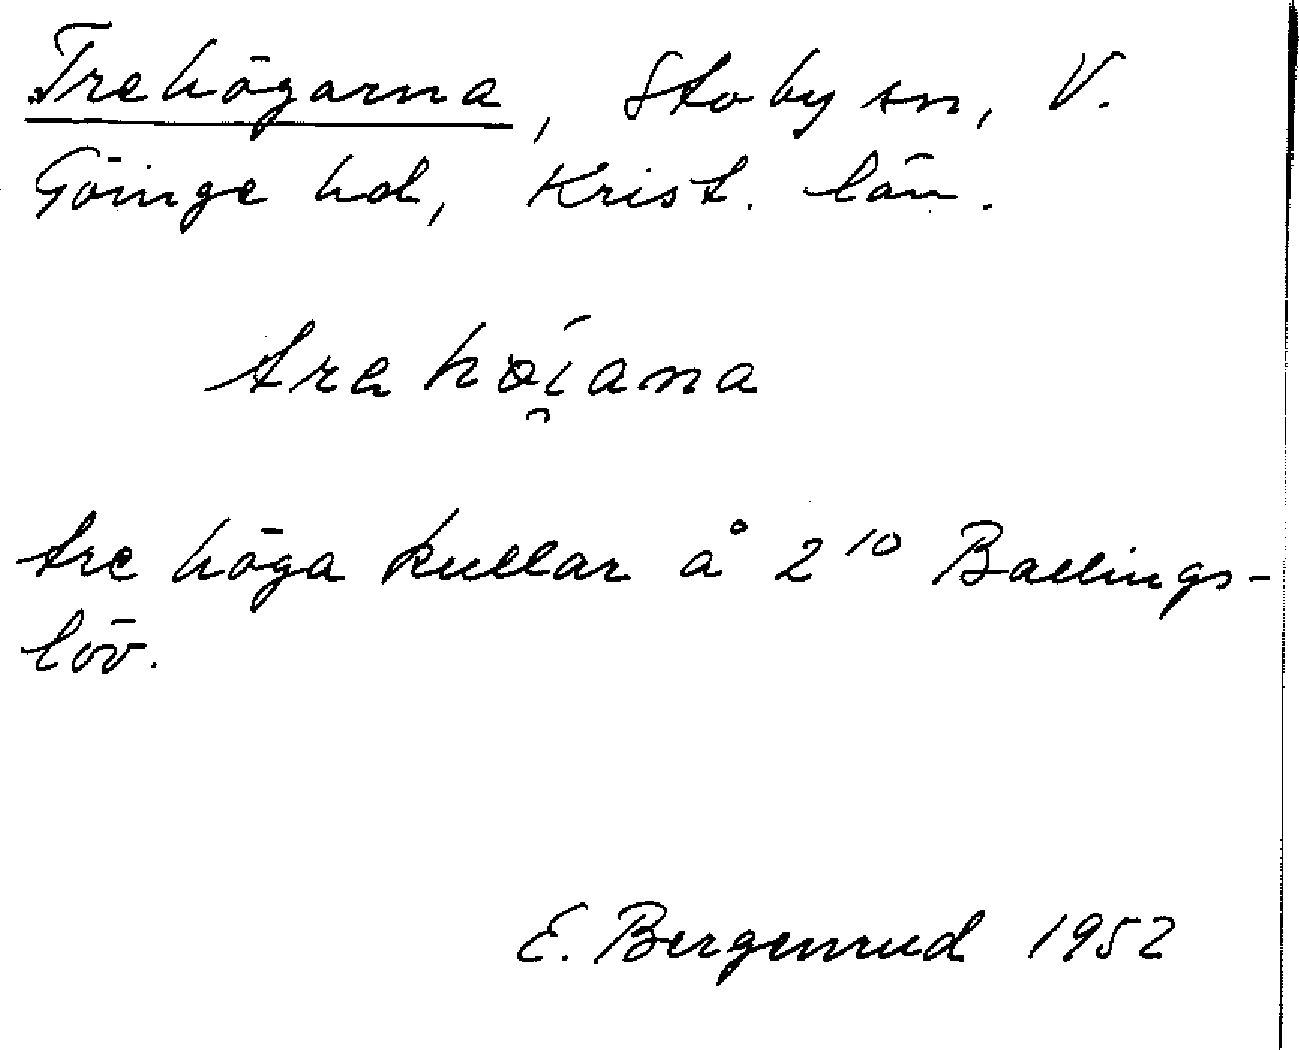 Trehögarna, Stoby sn, V.
Göinge hd, Krist. län.
trehøí̯ana
tre höga kullar å 2¹⁰ Ballings-
löv.
E. Bergenrud 1952